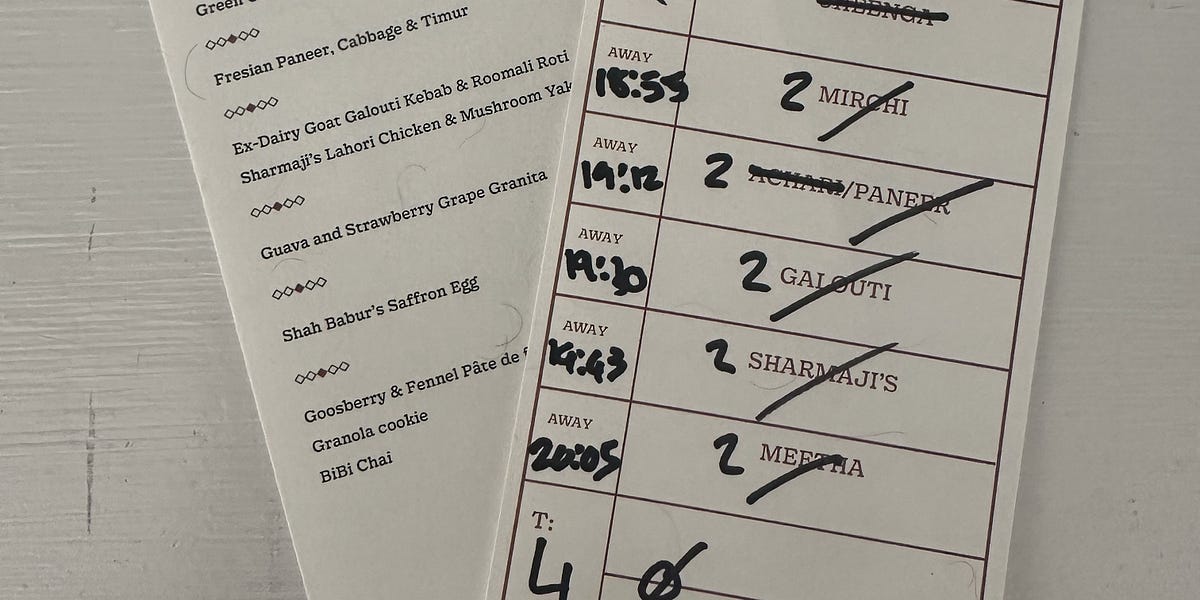 Green
Fresian Paneer, Cabbage & Timur
Ex-Dairy Goat Galouti Kebab & Roomali Roti
Sharmaji's Lahori Chicken & Mushroom Yak
Guava and Strawberry Grape Granita
Shah Babur's Saffron Egg
Goosberry & Fennel Pâte de
Granola cookie
BiBi Chai
SHEENGA
AWAY
18:55 2 MIRCHI
AWAY
19:12 2 ACHARI/PANEER
AWAY
19:30 2 GALOUTI
AWAY
19:43 2 SHARMAJI'S
AWAY
20:05 2 MEETHA
T:
4 0